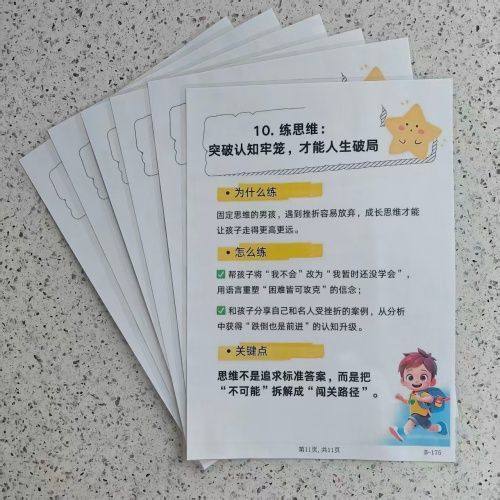 10. 练思维：
突破认知牢笼，才能人生破局
• 为什么练
固定思维的男孩，遇到挫折容易放弃，成长思维才能
让孩子走得更高更远。
• 怎么练
✅ 帮孩子将“我不会”改为“我暂时还没学会”，
用语言重塑“困难皆可攻克”的信念；
✅ 和孩子分享自己和名人受挫折的案例，从分析
中获得“跌倒也是前进”的认知升级。
• 关键点
思维不是追求标准答案，而是把
“不可能”拆解成“闯关路径”。
第11页, 共11页
B-176